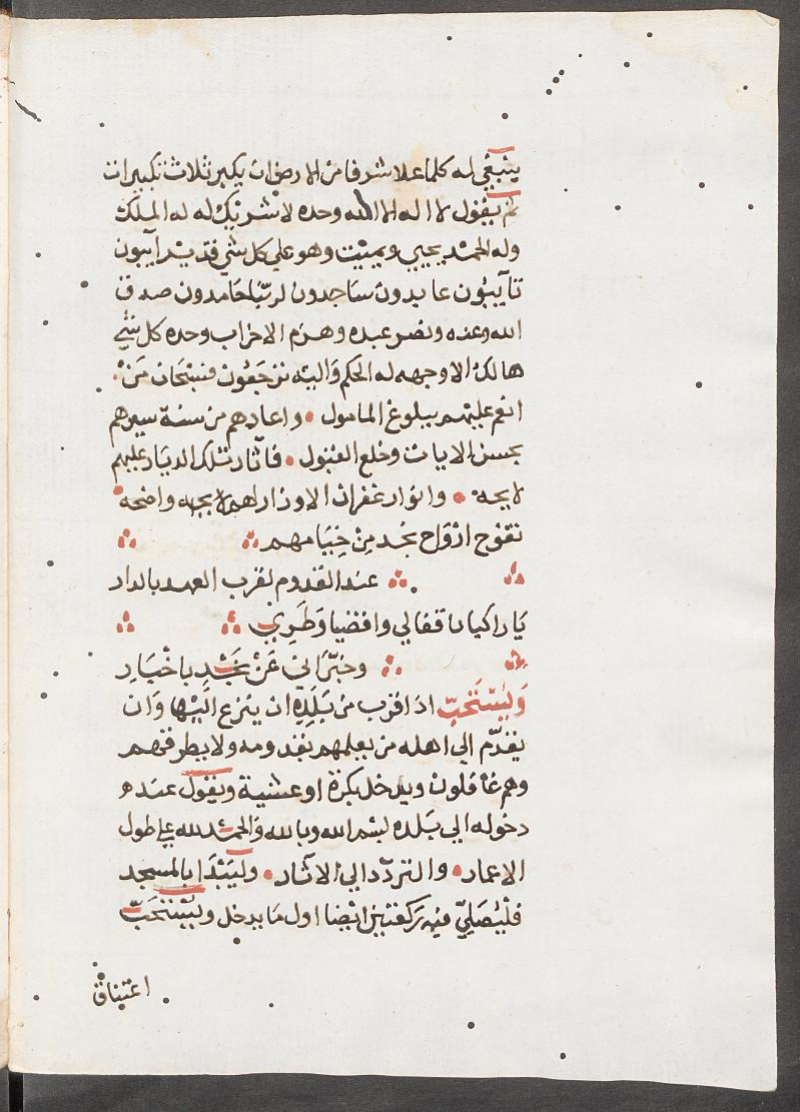 ينبغي له كلما علا شرفا من الارض ان يكبر ثلاث تكبيرات
ثم يقول لا اله الا الله وحده لا شريك له له الملك
وله الحمد يحيي ويميت وهو على كل شي قدير آيبون
تآيبون عابدون ساجدون لربنا حامدون صدق
الله وعده ونصر عبده وهزم الاحزاب وحده كل شي
هالك الا وجهه له الحكم واليه ترجعون فسبحان من
انعم عليهم ببلوغ المامول • واعادهم من سنة سيرهم
بحسن الايات وخلع القبول • فآثار تلك الديار عليهم
لايحه • وانوار غفران الاوزار لهم لايجه واضحه
تفوح ارواح نجد من خيامهم
عند القدوم لقرب العهد بالدار
يا راكبان قفا لي واقضيا وطري
وخبراني عن نجد باخبار
ويستحب اذا قرب من بلده ان ينزع اليها وان
يقدم الى اهله من يعلمهم بقدومه ولا يطرقهم
وهم غافلون ويدخل بكرة او عشية ويقول عند
دخوله الي بلده بسم الله وبالله والحمد لله علي طول
الاعمار • والتردد الي الآثار • وليبدا بالمسجد
فليصلي فيه ركعتين ايضا اول ما يدخل ويستحب
اعتناق